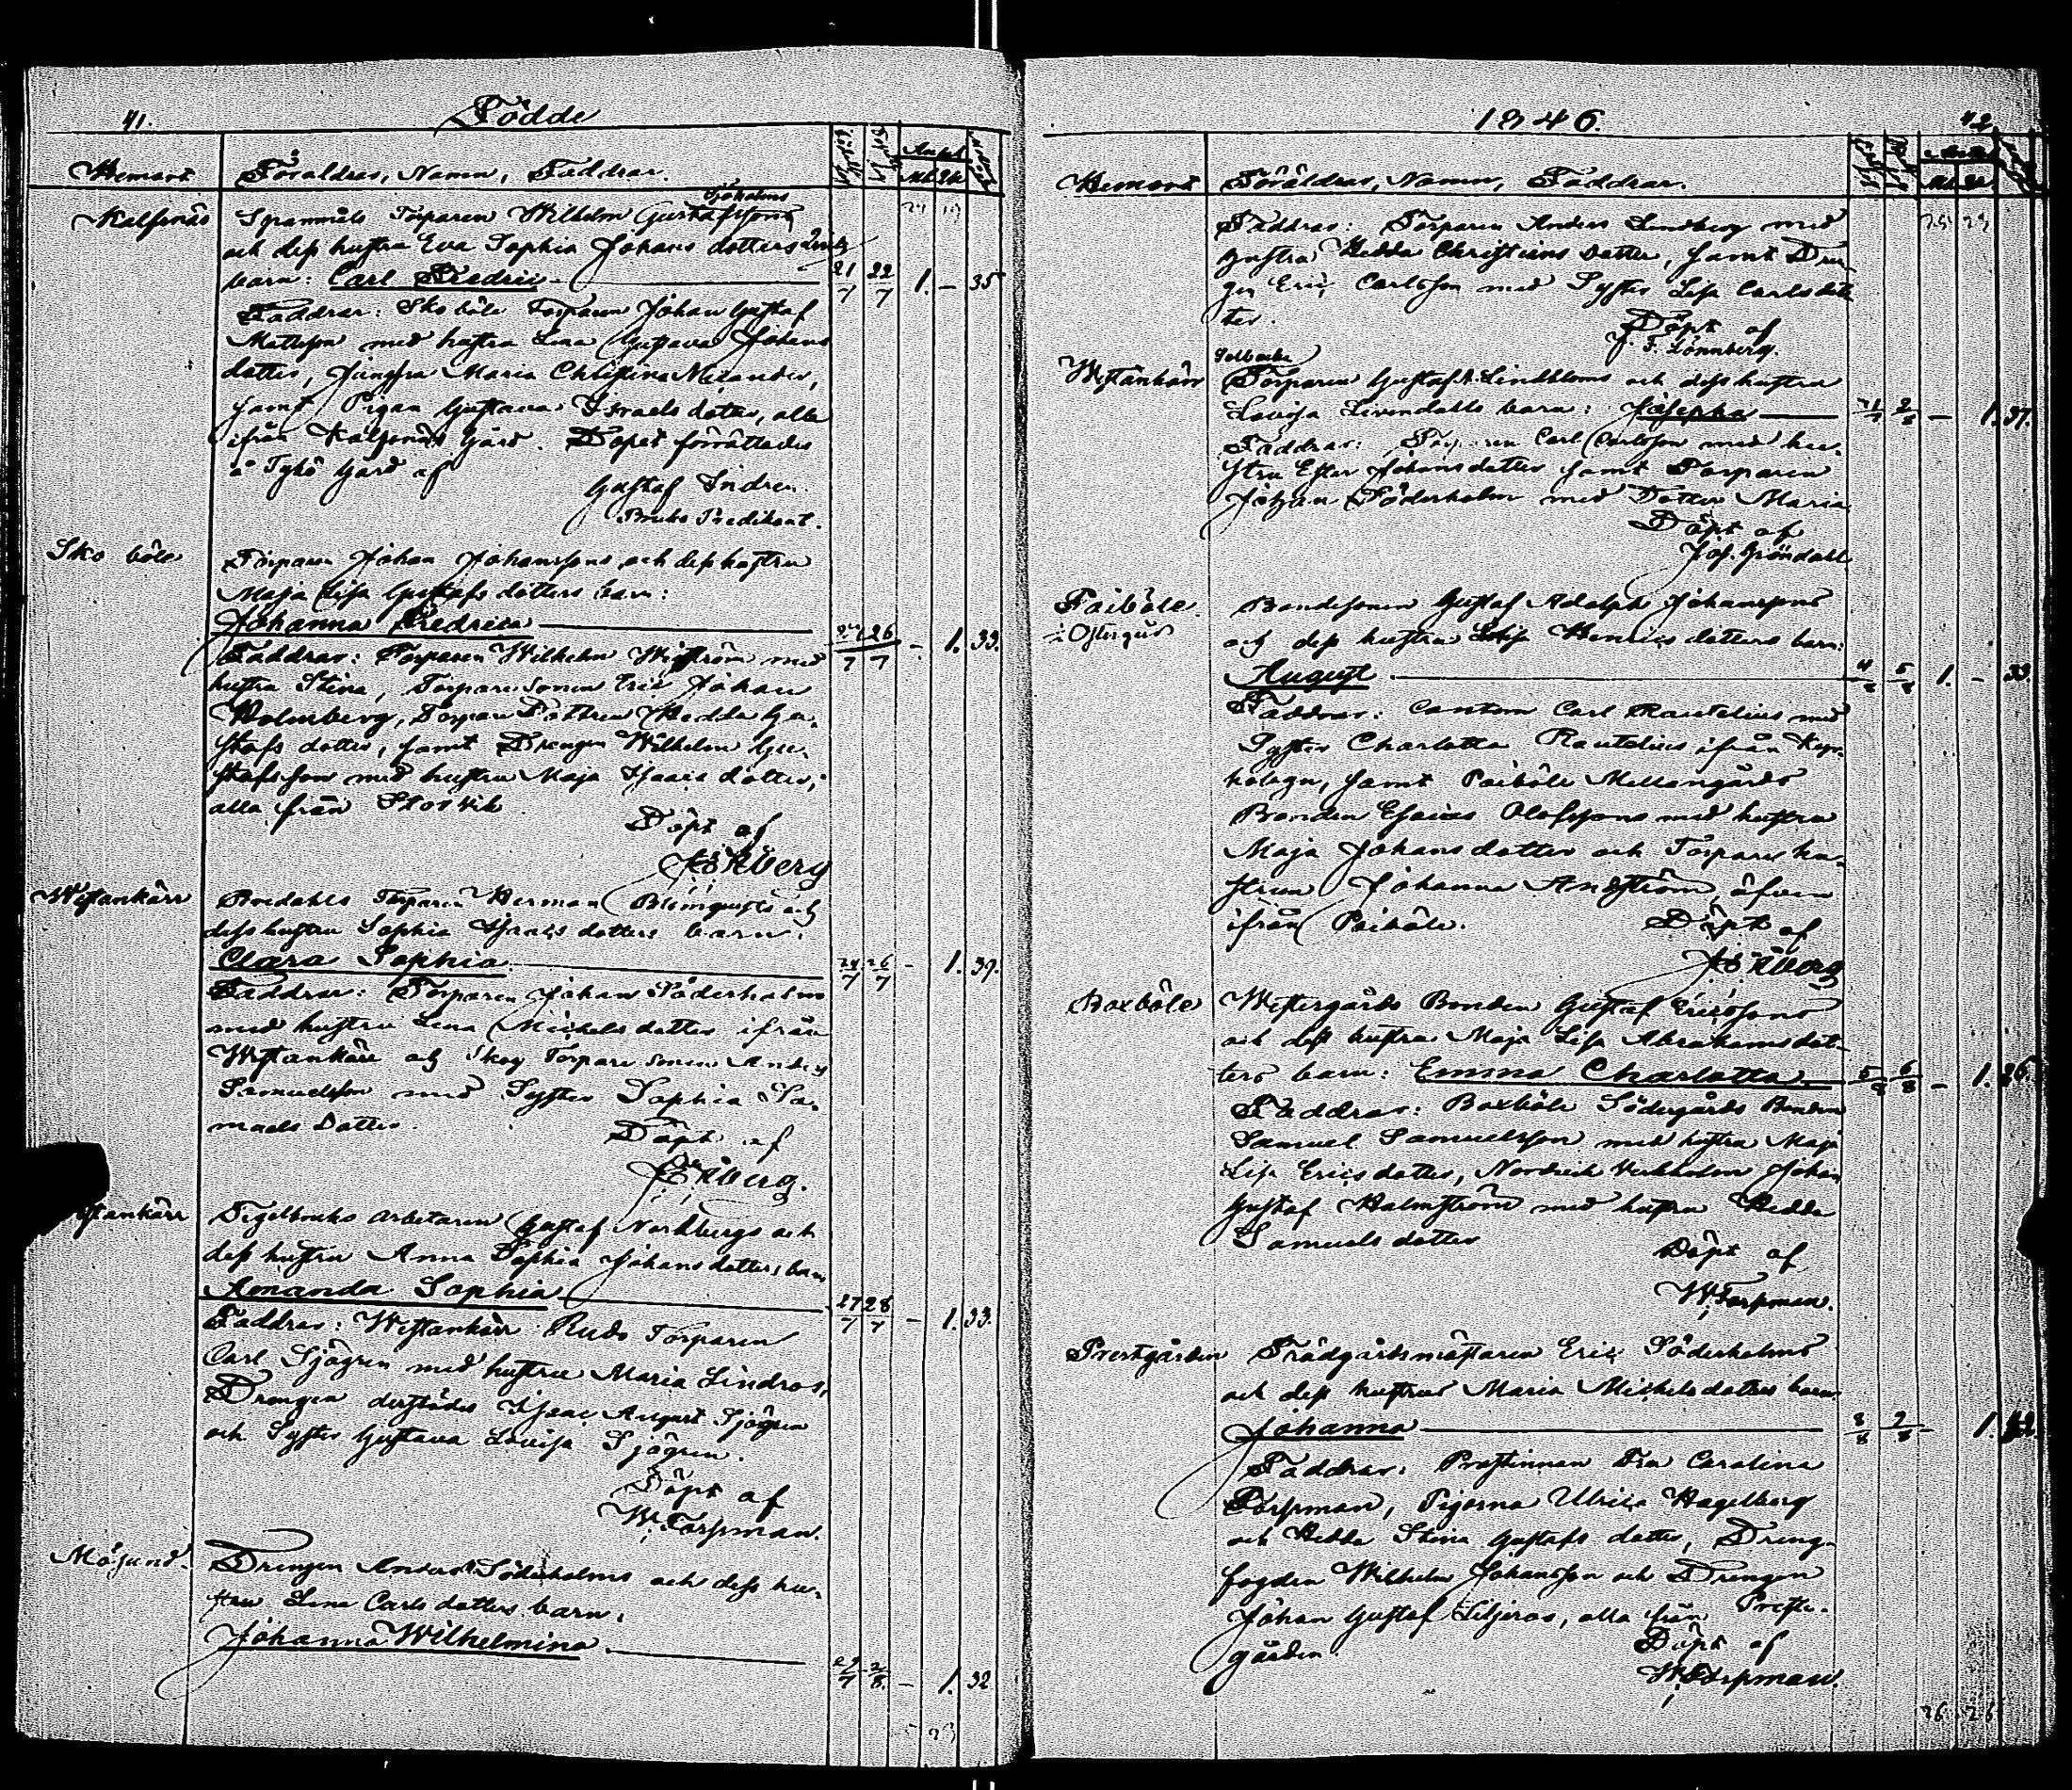 41.
Födde
Hemort Föräldrar, Namn, Faddrar.
Mk. Qk.
Sjöholms
Kalfsnäs Spannnäs Torparen Wilhelm Gustafssons
och dess hustru Eva Sophia Johans dotters
barn: Carl Fredric 21/7 22/7 1. – 35
Faddrar: Skoböle Torparen Johan Gustaf
Mattsson med hustru Lena Gustava Johans
dotter, Jungfru Maria Christina Melander,
samt Pigan Gustava Israels dotter, alla
ifrån Kalfsnäs Gård. Dopet förrättades
å Tykö Gård af
Gustaf Indren.
Bruks Predikant.
Sko böle Torparen Johan Johanssons och dess hustru
Maja Lisa Gustafs dotters barn:
Johanna Fredrica 24/7 26/7 – 1. 33.
Faddrar: Torparen Wilhelm Wiström med
hustru Stina, Torparesonen Eric Johan
Holmberg, Torpare Dottren Hedda Gu-
stafs dotter, samt Drengen Wilhelm Gu-
stafsson med hustru Maja Isaacs dotter,
alla från Storvik
Döpt af
Åberg
Westankärr Bredahls Torparen Herman Blomquists och
dess hustru Sophia Isaacs dotters barn:
Clara Sophia. 24/7 26/7 – 1. 39.
Faddrar: Torparen Johan Söderholm
med hustru Lena Michels dotter ifrån
Westankärr och Skog Torpare sonen Anders
Samuelsson med Syster Sophia Sa-
muels Dotter.
Döpt af
Åberg.
stankärr Tegelbruks arbetaren Gustaf Nordbergs och
dess hustru Anna Sophia Johans dotters barn
Amanda Sophia 27/7 28/7 – 1. 33.
Faddrar: Westankärr Ruds Torparen
Carl Sjögren med hustru Maria Lindros,
Drengen derstädes Isaac August Sjögren
och Syster Gustava Lovisa Sjögren.
Döpt af
W. Forsman.
Mösund. Drengen Anders Söderholms och dess hu-
stru Lena Carls dotters barn:
Johanna Wilhelmina. 29/7 2/8 – 1. 32
1846.
42
Hemort Föräldrar, Namn, Faddrar.
Faddrar: Torparen Anders Lindberg med
hustru Hedda Christians dotter, samt Dren-
gen Eric Carlsson med Syster Lisa Carlsdot-
ter.
Döpt af
J. F. Lönnberg.
Westankärr Torparen Gustaf A. Lindbloms och dess hustru
Lovisa Levendahls barn: Josepha 2/8 – 1. 37.
Faddrar: Torparen Carl Carlsson med hu-
stru Ester Johansdotter samt Torparen
Johan Söderholm med Dotter Maria
Döpt af
Jos. Gröndahl
Paiböle Bondesonen Gustaf Adolph Johanssons
Östergård och dess hustru Lovisa Henrics dotters barn:
August 4/8 5/8 1. – 33.
Faddrar: Cantorn Carl Rautelius med
Syster Charlotta Rautelius ifrån
samt Paiböle Mellangårds
Bonden Esaias Olofssons med hustru
Maja Johansdotter och Torpare hu-
strun Johanna Andström, äfven
ifrån Paiböle. Döpt af
Åberg
Boxböle Westergårds Bonden Gustaf Ericssons
och dess hustru Maja Lisa Abrahamsdot-
ters barn: Emma Charlotta 5/8 6/8 – 1. 26
Faddrar: Boxböle Södergårds Bonden
Samuel Samuelsson med hustru Maja
Lisa Ericsdotter, Johan
Gustaf Malmström med hustru Hedda
Samuels dotter
Döpt af
W. Forsman.
Prestgården Trädgårdsmästaren Eric Söderholms
och dess hustrus Maria Michelsdotters barn
Johanna 3/8 7/8 – 1.
Faddrar: Prostinnan Fru Carolina
Forssman, Pigorna Ulrica Hagelberg
och Hedda Stina Gustafs dotter, Dreng-
fogden Wilhelm Johansson och Drengen
Johan Gustaf Liljeros, alla från Prest-
gården. Döpt af
W. Forssman.
26 26